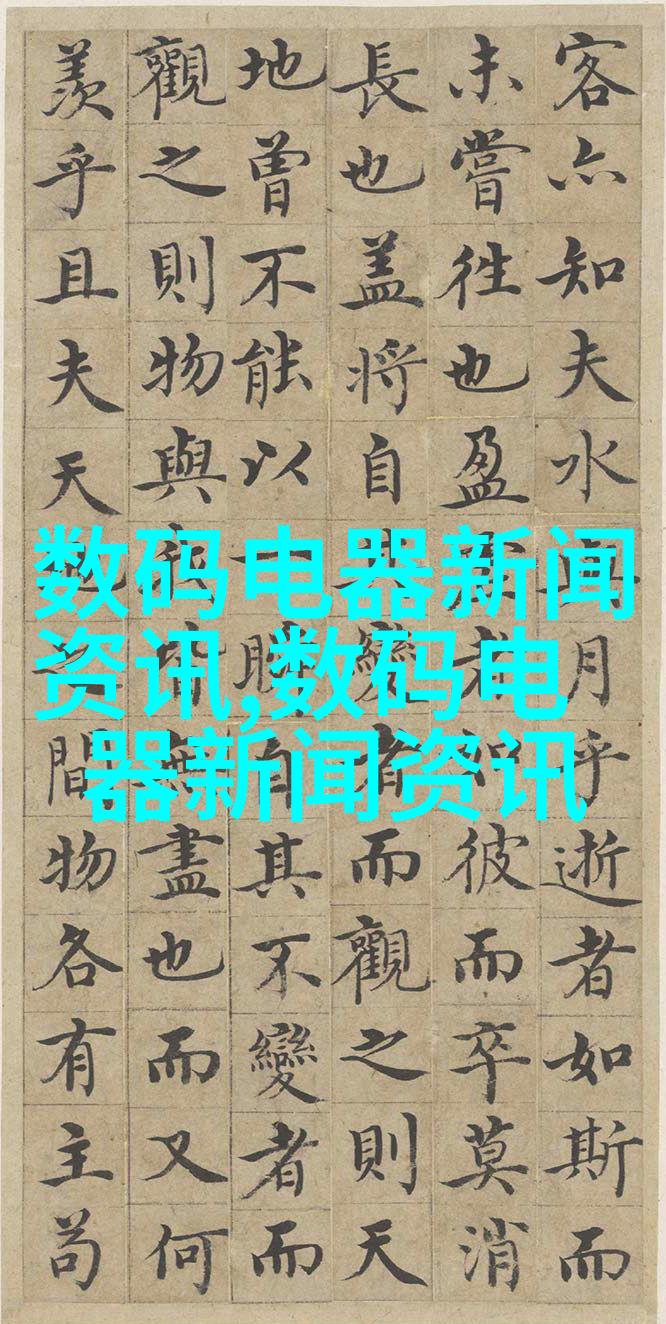 客亦知夫水與月乎逝者如斯而
未嘗往也盈虛者如彼而卒莫消
長也盖將自其變者而觀之則天
地曾不能以一瞬自其不變者而
觀之則物與我皆無盡也而又何
羨乎且夫天地之間物各有主苟
数码电器新闻
资讯,数码电
器新闻资讯